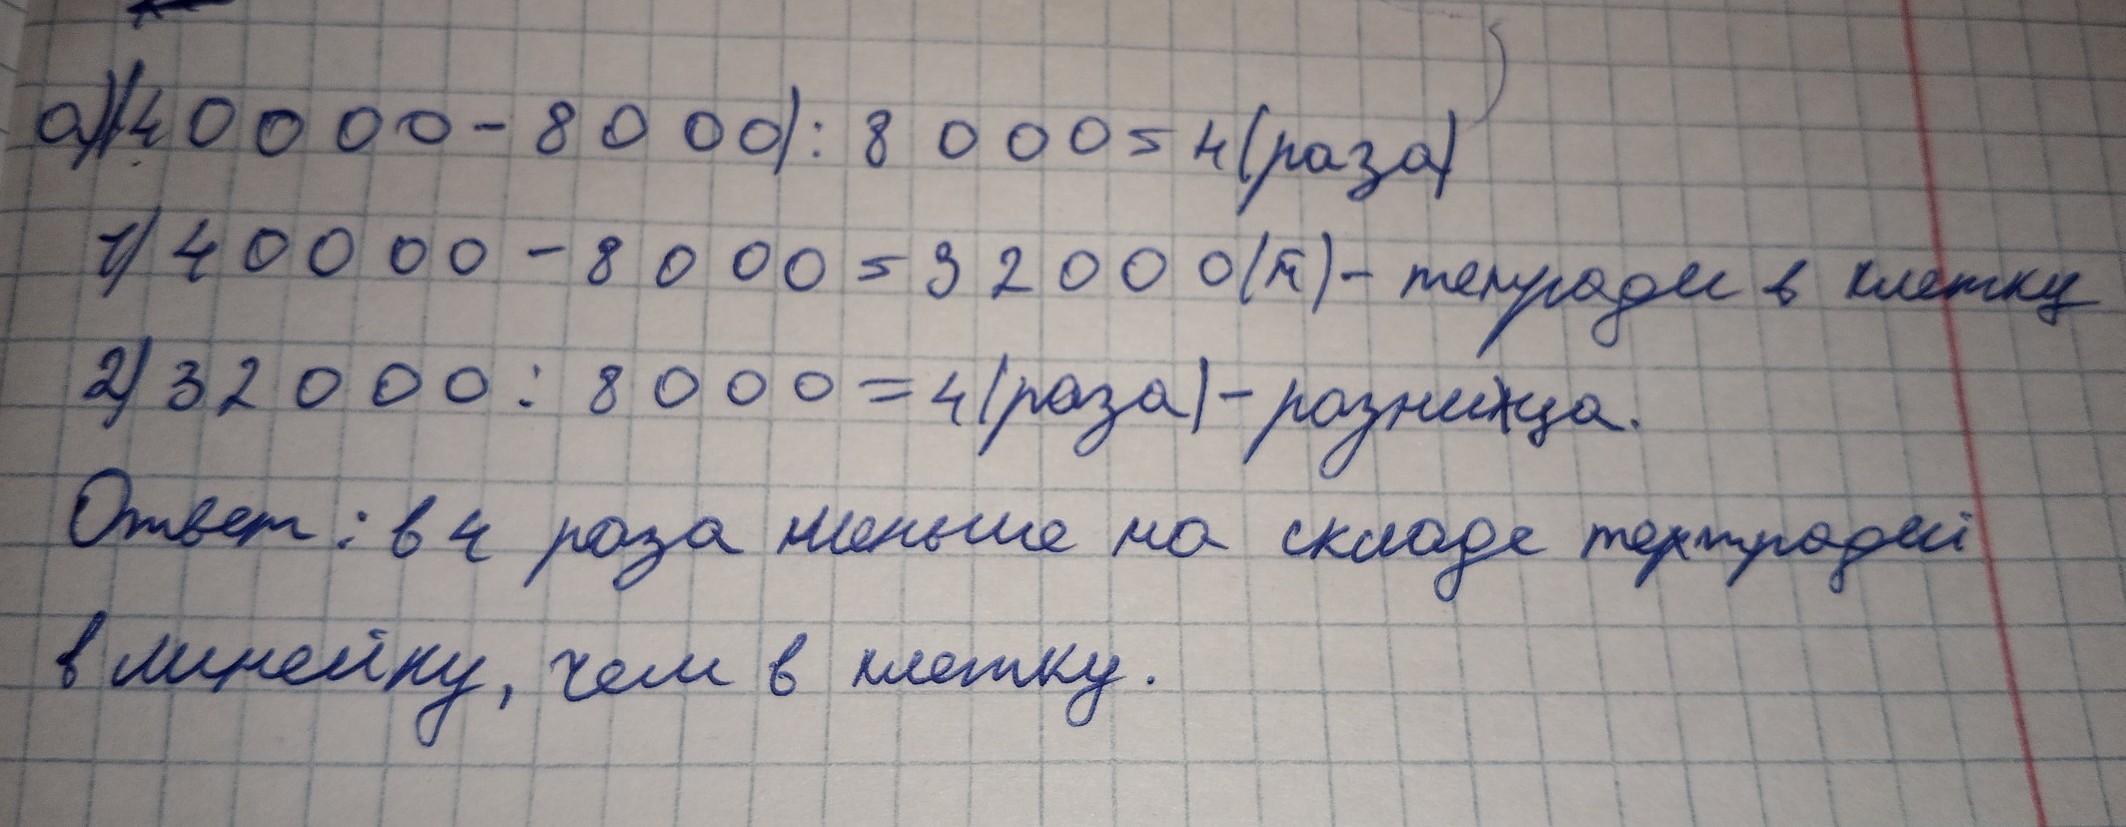 а) (40000-8000):8000=4(раза)
1) 40000-8000=32000(т)-тетради в клетку
2) 32000:8000=4(раза)-разница.
Ответ: в 4 раза меньше на складе тетрадей
в линейку, чем в клетку.